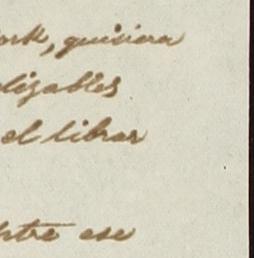 ork, quisiera
lizables
el librar
ptre ese